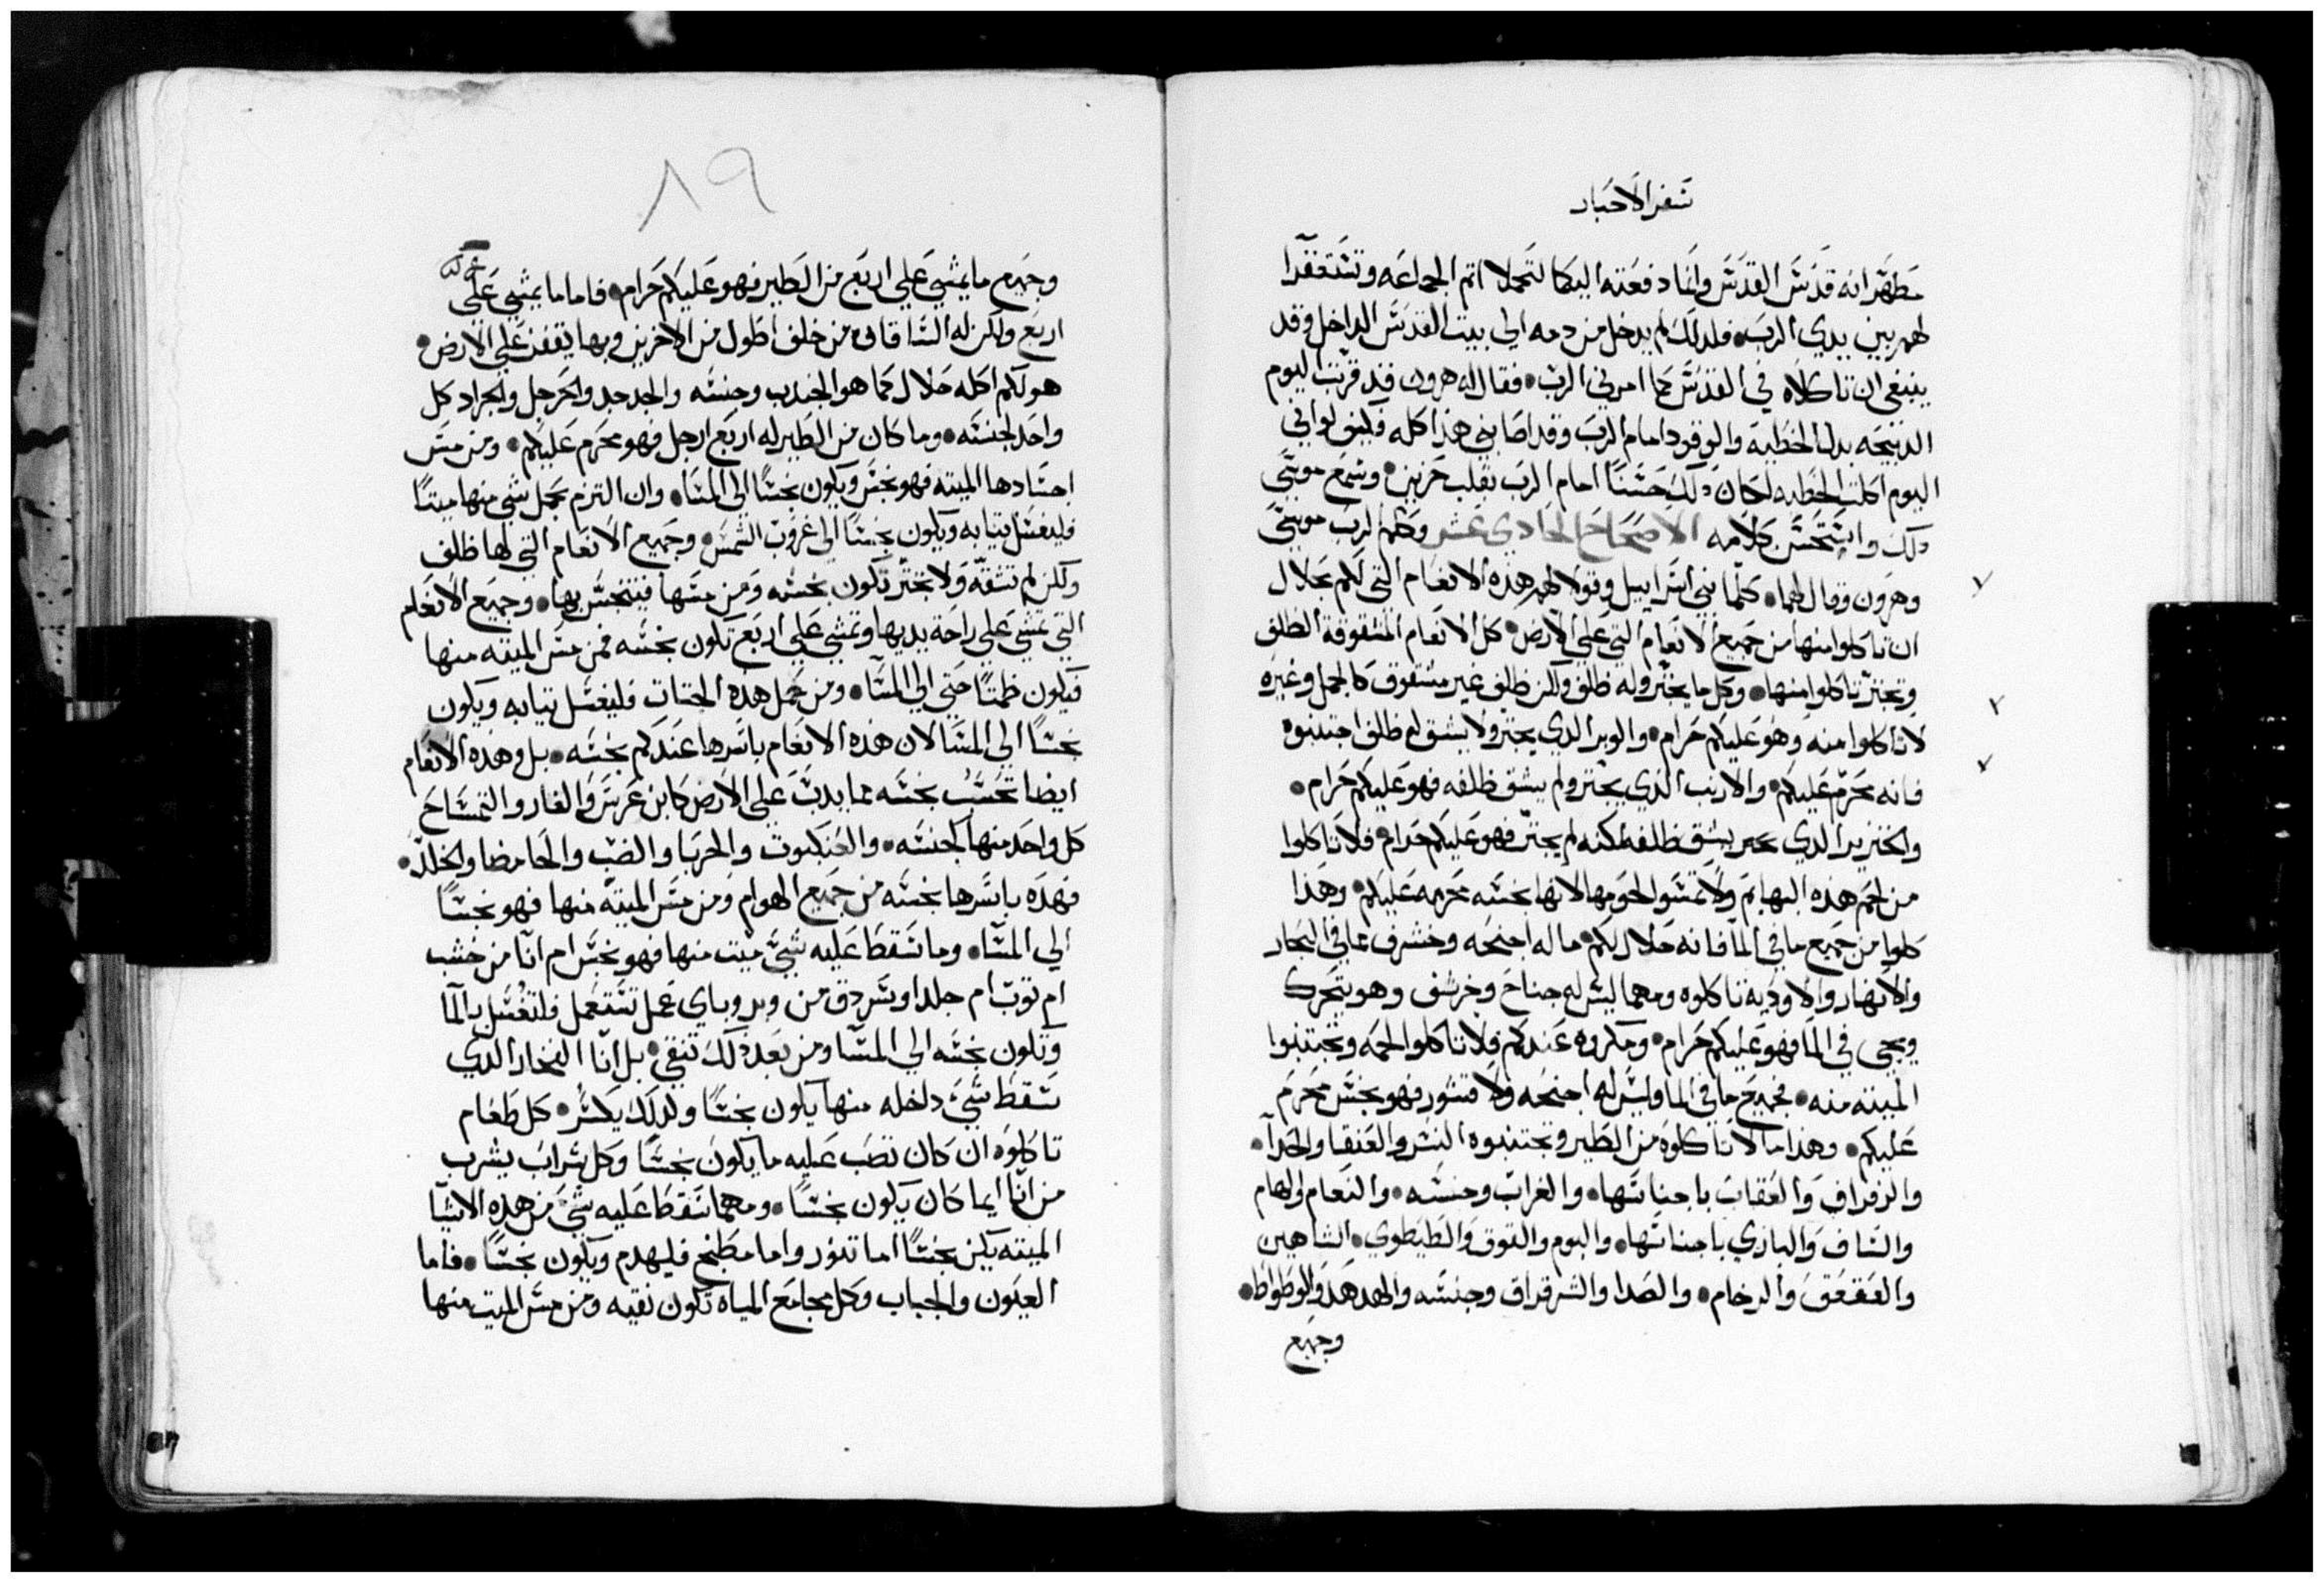 سفر الاحبار
مطهر انه قدس القدس وانا دفعته اليكما لتحملا اتم الجماعه وتستغفرا
لهم بين يدي الرب فلدلك لم يدخل من دمه الي بيت القدس الداخل وقد
ينبغي ان تاكلاه في القدس كما امرني الرب فقال له هرون قد قربت اليوم
الدبيحه بدل الخطية والوقود امام الرب وقد اصابني هذا كله فليف لو اني
اليوم اكلت الخطيه لكان دلك حسنا امام الرب بقلب حزين وسمع موسي
دلك واستحسن كلامه الاصحاح الحادي عشر وكلم الرب موسي
وهرون وقال لهما كلما بني اسراييل وقولا لهم هذه الانعام التي لكم حلال
ان تاكلوا منها من جميع الانعام التي علي الارض كل الانعام المشقوقة الظلف
وتجتر تاكلوا منها وكل ما يجتر وله ظلف ولكن ظلف غير مشقوق كالجمل وغيره
لا تاكلوا منه وهو عليكم حرام والوبر الدي يجتر ولا يشق له ظلف اجتنبوه
فانه محرم عليكم والارنب الذي يجتر ولم يشق ظلفه فهو عليكم حرام
والخنزير الدي يشق ظلفه لكنه لم يجتر فهو عليكم حرام فلا تاكلوا
من لحم هذه البهايم ولا تمسوا لحومها لانها نجسه محرمه عليكم وهذا
كلوا من جميع ما في الما فانه حلال لكم ما له اجنحه وخشرف مما في البحار
والانهار والاودية تاكلوه ومهما ليس له جناح وخرشف وهو يتحرك
ويحي في الما فهو عليكم حرام ومكروه عندكم فلا تاكلوا لحمه وتجتنبوا
الميته منه فجميع ما في الما وليس له اجنحه ولا قشور فهو نجس محرم
عليكم وهذا ما لا تاكلوه من الطير وتجتنبوه النسر والعنقا والحدا
والزفراف والعقاب باجناسها والغراب وجنسه والنعام والهام
والساف والبازي باجناسها والبوم والقوق والطيطوي الشاهين
والعقعق والرخام والصدا والشرقراق وجنسه والهدهد والوطواط
وجميع
٨٩
وجميع ما يمشي علي اربع من الطير فهو عليكم حرام فاما ما يمشي علي
اربع ولكن له الساقان من خلف اطول من الاخرين وبها يقفز علي الارض
هو لكم اكله حلال كما هو الجندب وجنسه والجدجد والحرجل والجراد كل
واحد لجنسه وما كان من الطير له اربع ارجل فهو محرم عليكم ومن مس
اجسادها الميته فهو نجس ويكون نجسا الي المسا وان التزم بحمل شي منها ميتا
فليغسل تيابه ويكون نجسا الي غروب الشمس وجميع الانعام التي لها ظلف
ولكن لم تشقه ولا تجتر تكون نجسه ومن مسها فيتنجس بها وجميع الانعام
التي تمشي علي راحة يديها وتمشي علي اربع تكون نجسه فمن مس الميته منها
فيكون طمتا حتي الي المسا ومن حمل هذه الجتات فليغسل تيابه ويكون
نجسا الي المسا لان هذه الانعام باسرها عندكم نجسه بل وهذه الانعام
ايضا تحسب نجسه مما يدب علي الارض كابن عرس والفار والتمساح
كل واحد منها كجنسه والعنكبوت والحربا والضب والحامضا والخلد
فهده باسرها نجسه من جميع الهوام ومن مس الميته منها فهو نجسا
الي المسا وما سقط عليه شي ميت منها فهو نجس ام انا من خشب
ام توب ام جلدا وسردق من وبر وباي عمل تستعمل فلتغسل بالما
وتكون نجسه الي المسا ومن بعد دلك تنقي بل انا الفخار الدي
سقط شي داخله منها يكون نجسا ولدلك يكسر كل طعام
تاكلوه ان كان تصب عليه ما يكون نجسا وكل شراب يشرب
من انا ايما كان يكون نجسا ومهما سقط عليه شي من هذه الاشيا
الميته يكن نجسا اما تنور واما مطبخ فليهدم ويكون نجسا فاما
العيون والجباب وكل مجامع المياه تكون نقيه ومن مس الميت منها